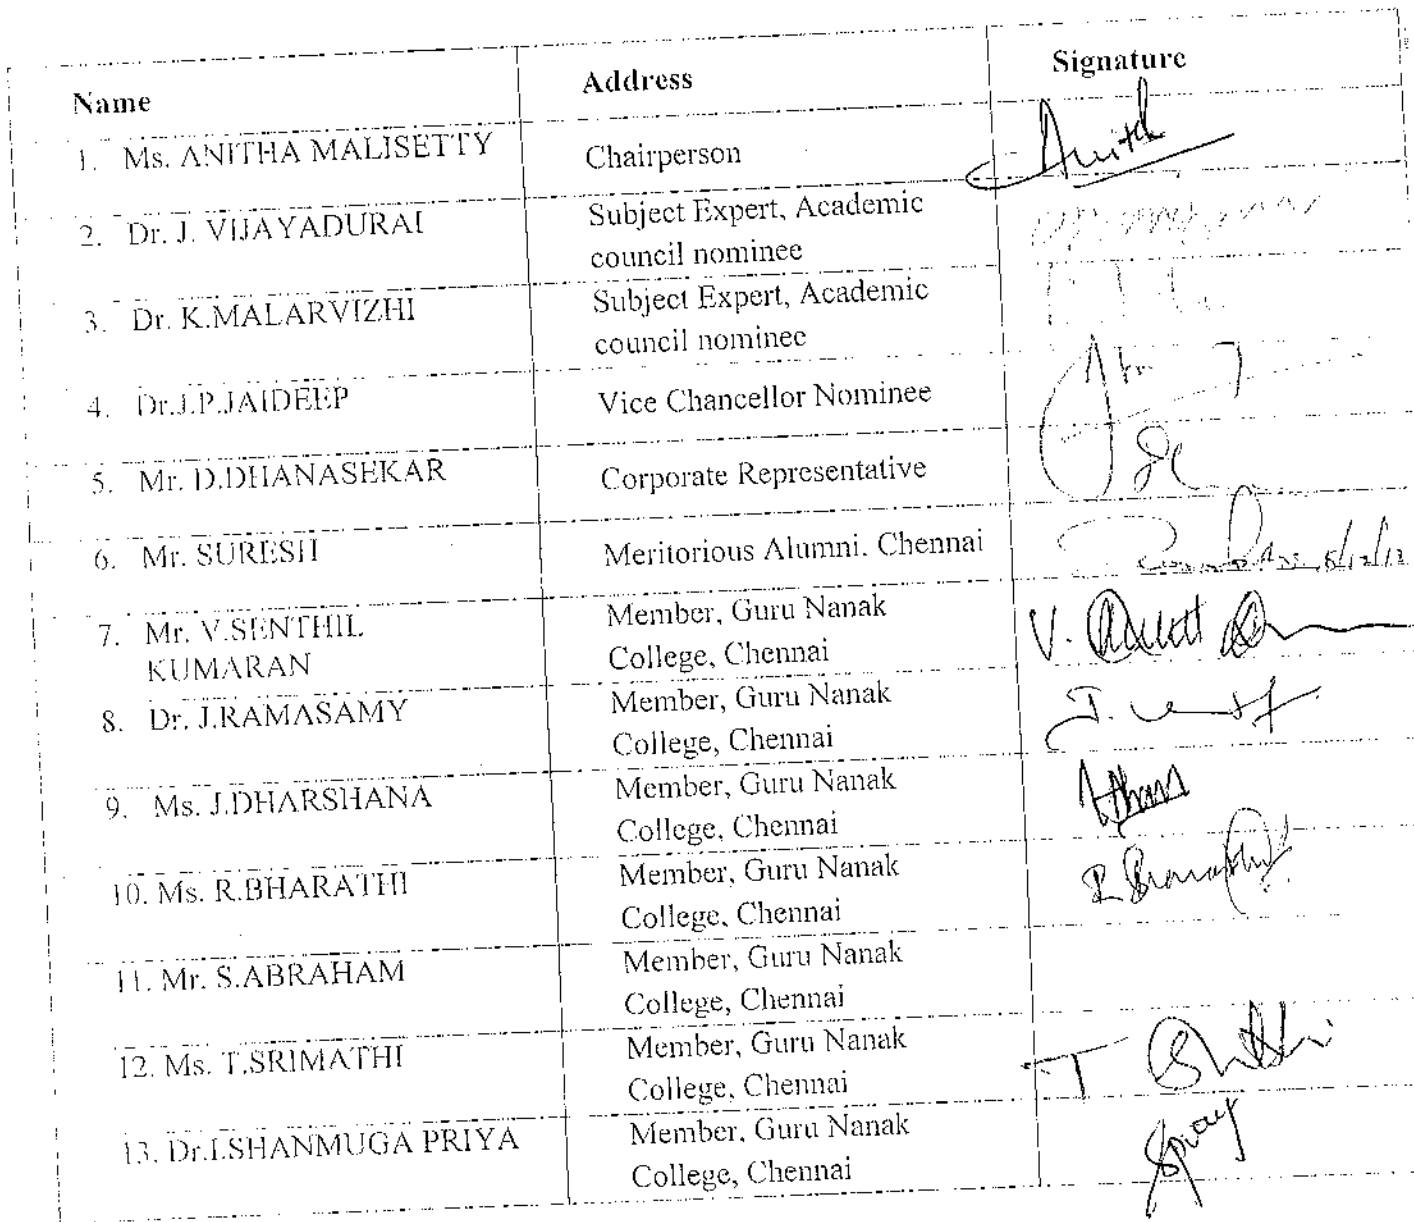 Name Address Signature
1. Ms. ANITHA MALISETTY Chairperson Anith
2. Dr. J. VIJAYADURAI Subject Expert, Academic
council nominee
3. Dr. K.MALARVIZHI Subject Expert, Academic
council nominee
4. Dr.J.P.JAIDEEP Vice Chancellor Nominee
5. Mr. D.DHANASEKAR Corporate Representative
6. Mr. SURESH Meritorious Alumni. Chennai
7. Mr. V.SENTHIL Member, Guru Nanak V.
KUMARAN College, Chennai
8. Dr. J.RAMASAMY Member, Guru Nanak J.
College, Chennai
9. Ms. J.DHARSHANA Member, Guru Nanak
College, Chennai
10. Ms. R.BHARATHI Member, Guru Nanak
College, Chennai
11. Mr. S.ABRAHAM Member, Guru Nanak
College, Chennai
12. Ms. T.SRIMATHI Member, Guru Nanak T
College, Chennai
13. Dr.I.SHANMUGA PRIYA Member, Guru Nanak
College, Chennai